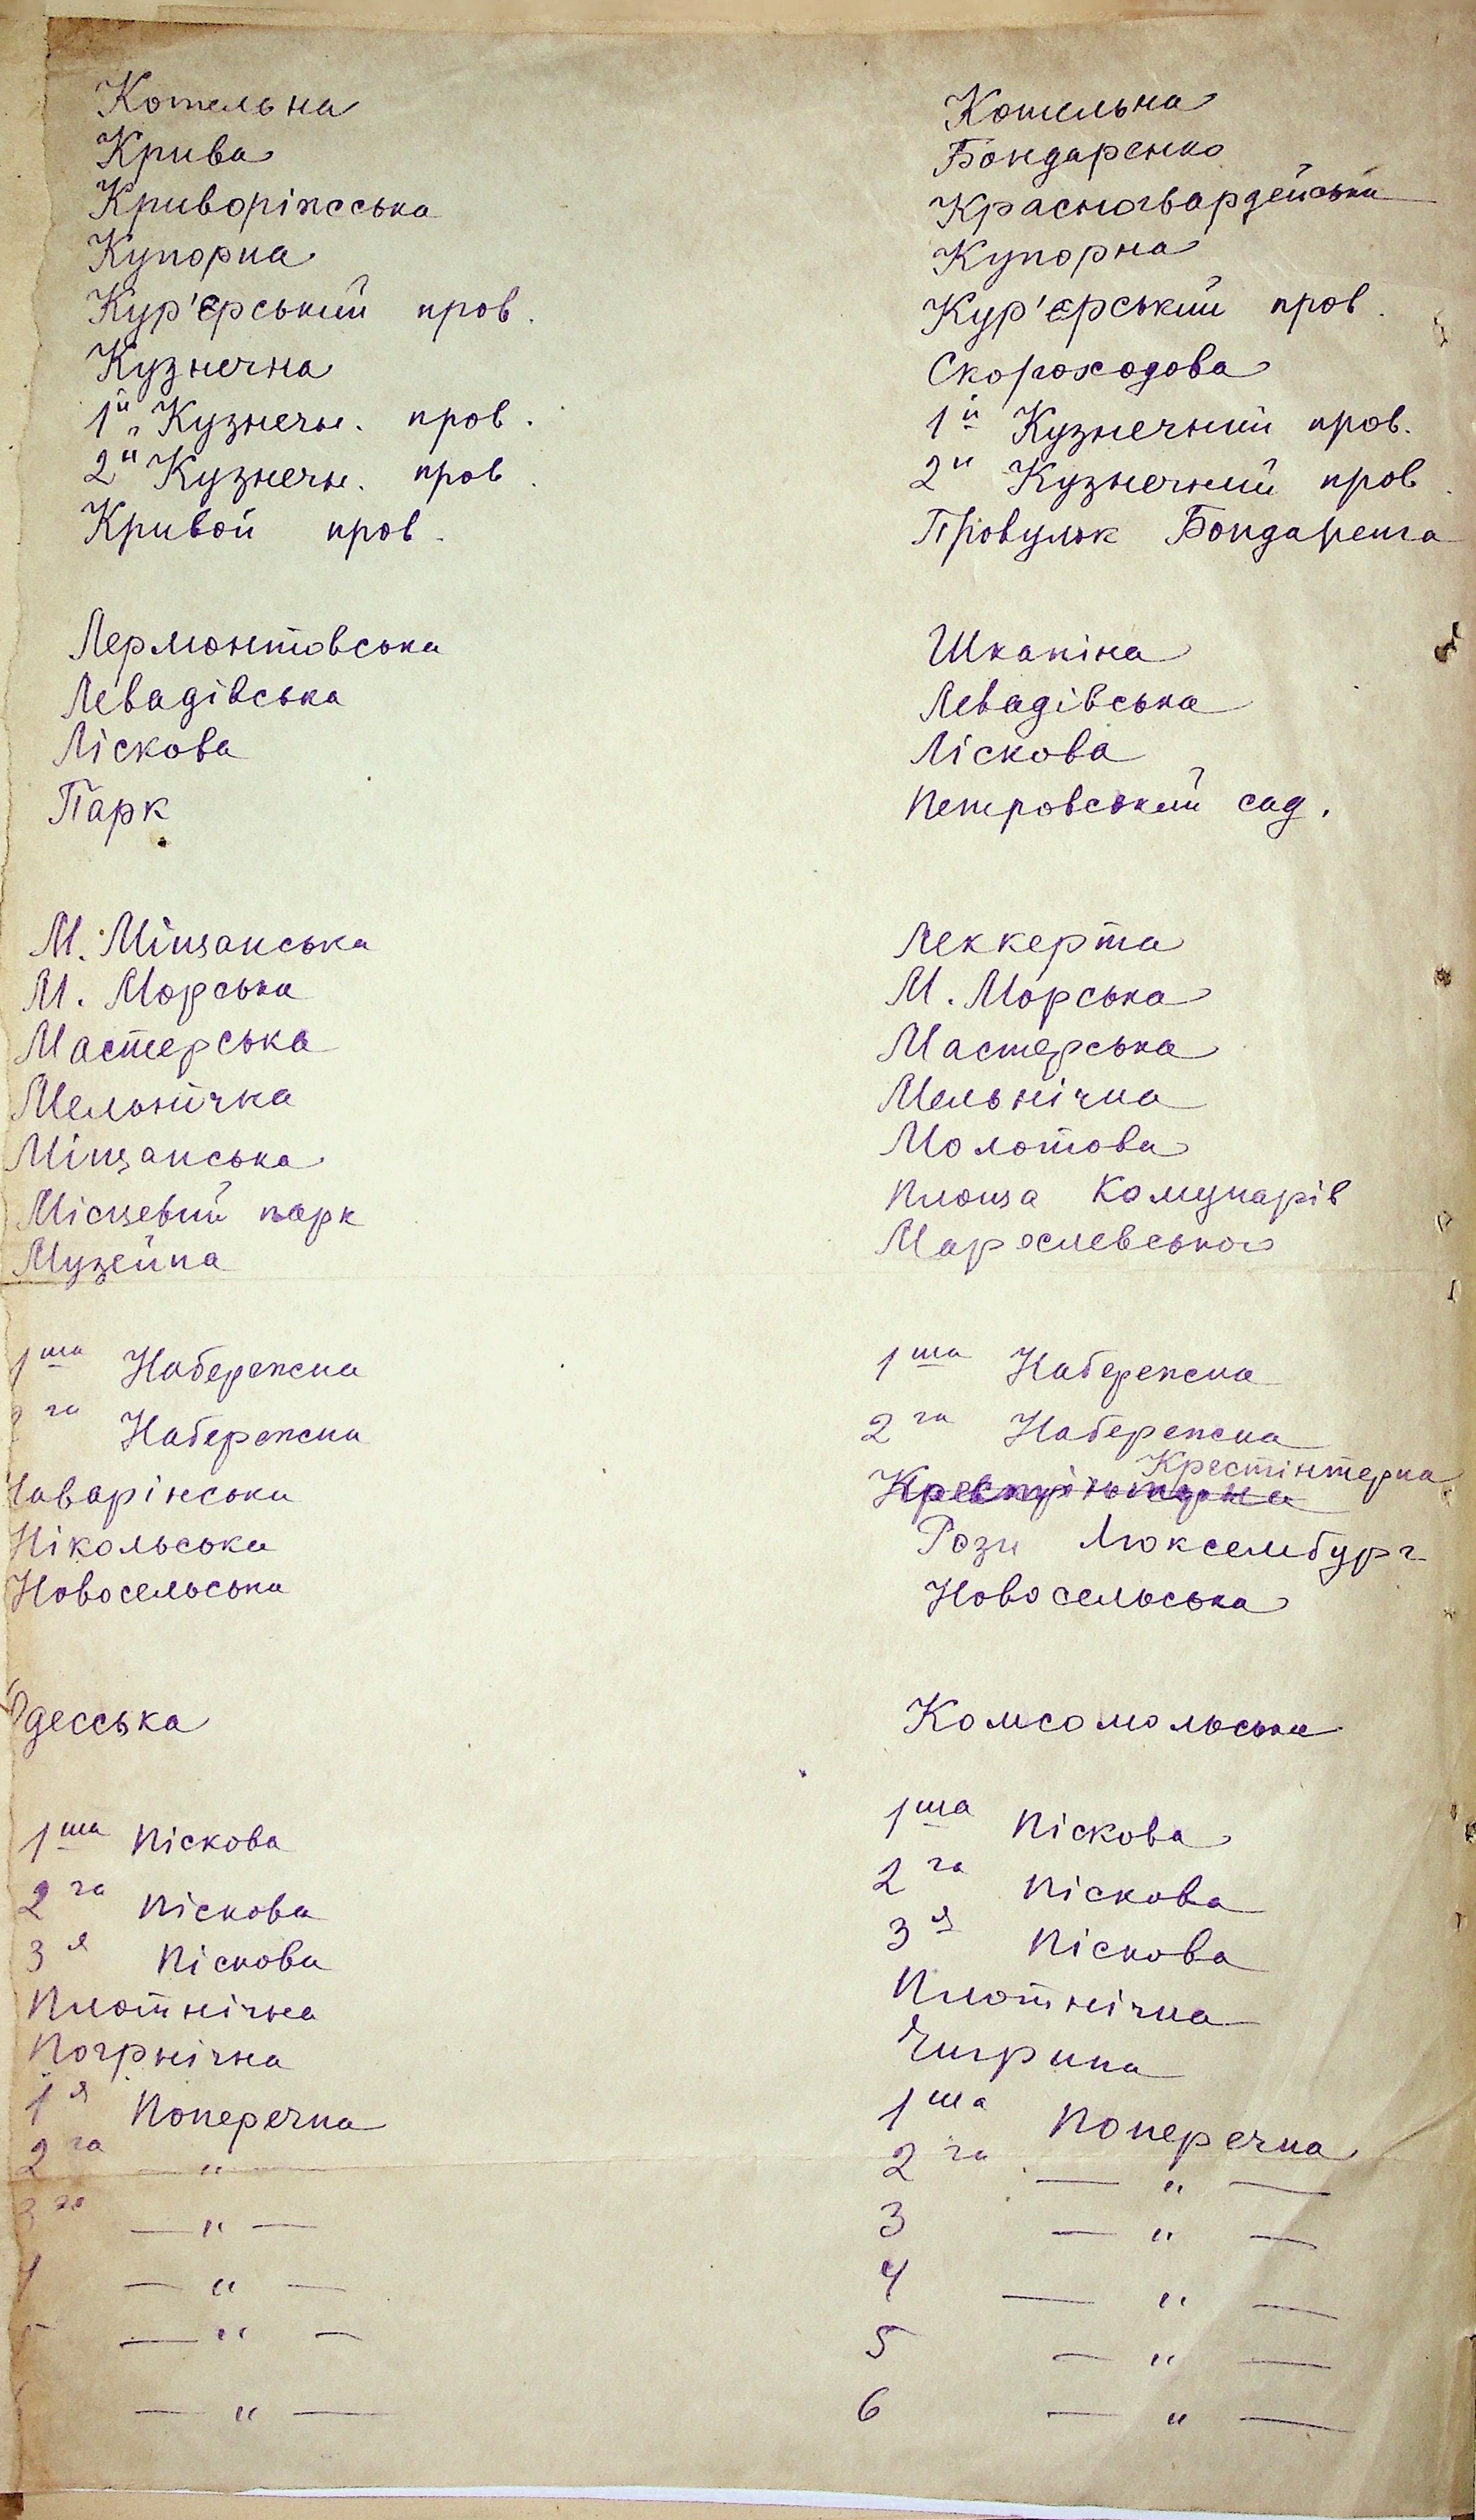 Котельна Котельна
Крива Бондаренко
Криворіжська Красногвардейська
Купорна Купорна
Кур'єрський пров. Кур'єрський пров.
Кузнечна Скороходова
1й Кузнечн. пров. 1й Кузнечний пров.
2й Кузнечн. пров. 2й Кузнечний пров.
Кривой пров. Провулок Бондаренка
Лермонтовська Шкапіна
Левадівська Левадівська
Ліскова Ліскова
Парк Петровський сад.
М. Міщанська Леккерта
М. Морська М. Морська
Мастерська Мастерська
Мельнічна Мельнічна
Міщанська Молотова
Місцевий парк Площа Комунарів
Музейна Мархлевського
1ша Набережна 1ша Набережна
2га Набережна 2га Набережна
Крестінтерна
Наварінська Крестрінтерна
Нікольська Рози Люксембург
Новосельська Новосельська
Одесська Комсомольська
1ша Піскова 1ша Піскова
2га Піскова 2га Піскова
3я Піскова 3я Піскова
Плотнічна Плотнічна
Погрнічна Чигрина
1я Поперечна 1ша Поперечна
2га — " — 2га — " —
3я — " — 3 — " —
4 — " — 4 — " —
5 — " — 5 — " —
— " — 6 — " —